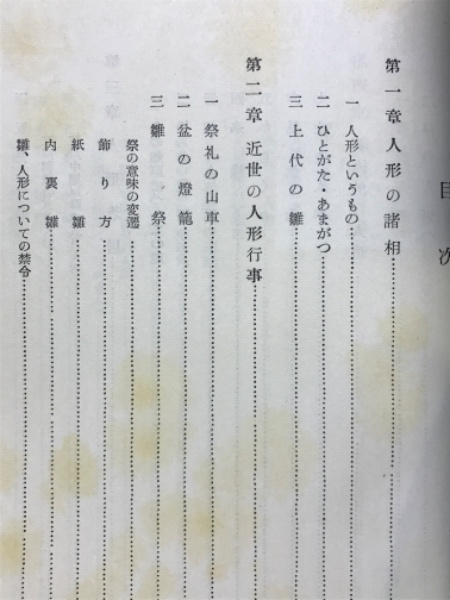 目次
第一章 人形の諸相
一 人形というもの
二 ひとがた・あまがつ
三 上代の雛
第二章 近世の人形行事
一 祭礼の山車
二 盆の燈籠
三 雛祭
祭の意味の変遷
飾り方
紙雛
内裏雛
雛、人形についての禁令